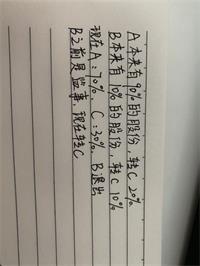 A本来有90%的股份，转C 20%
B本来有10%的股份，转C 10%
现在A:70%，C:30%，B退出
B之前是监事，现在转C